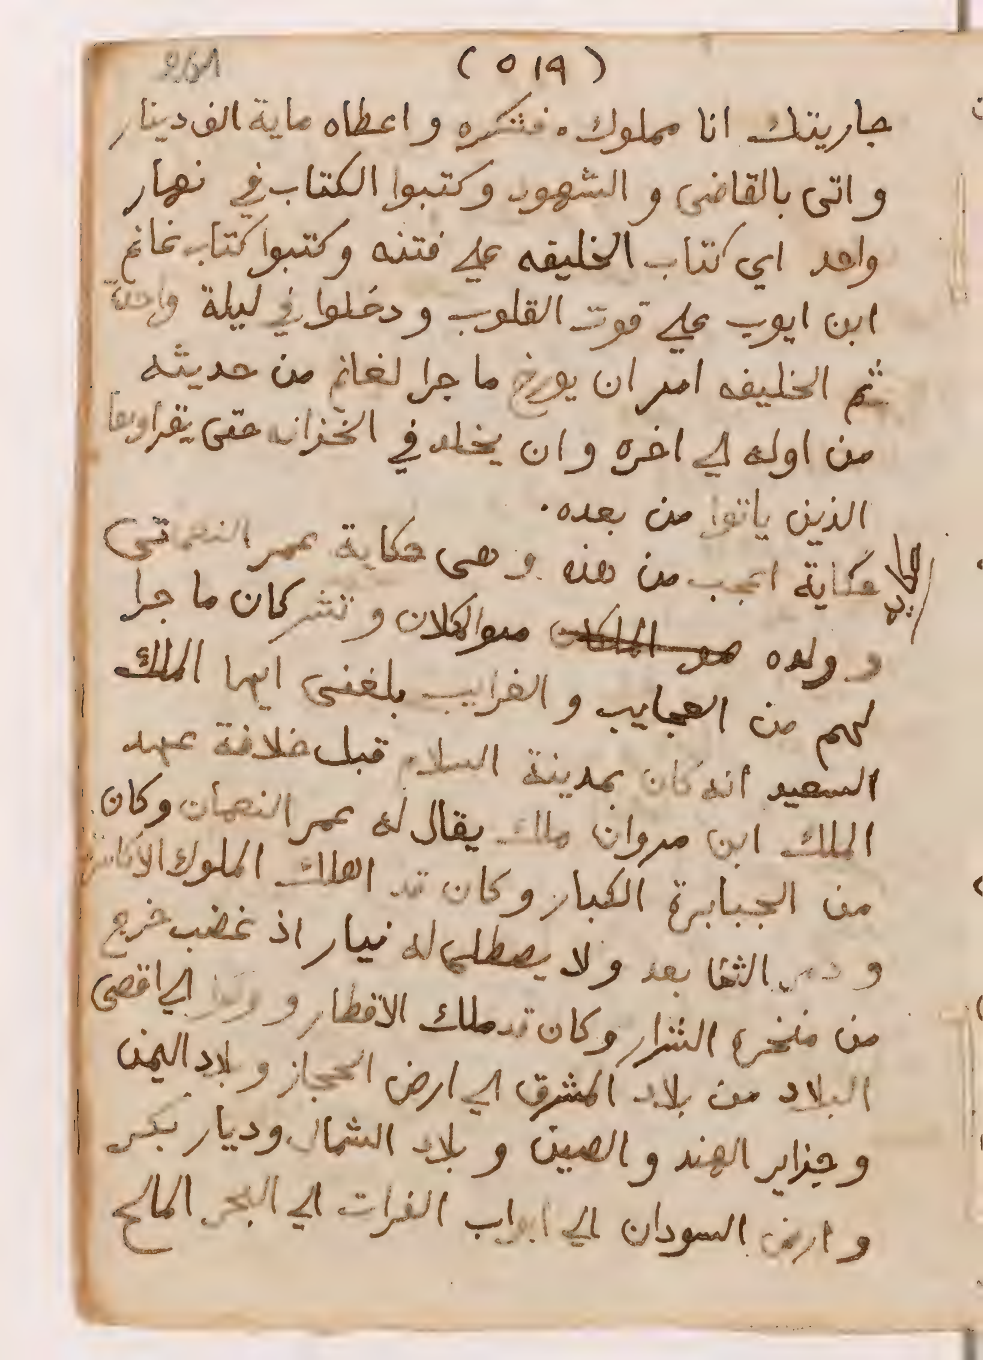 (٥١٩)
جاريتك انا مملوك. فشكره و اعطاه ماية الف دينار
و اتى بالقاضى و الشهود و كتبوا الكتاب في نهار
واحد اي كتاب الخليفه على فتنه و كتبوا كتاب غانم
ابن ايوب على قوت القلوب و دخلوا في ليلة واحدة
ثم الخليفه امر ان يورخ ما جرا لغانم من حديثه
من اوله الى اخره و ان يخلد في الخزانه حتى يقراوها
الذين ياتوا من بعده.
الحكاية
حكاية اعجب من هذه و هى حكاية عمر النعماني
و ولده ضو المكان و شركان ما جرا
لهم من العجايب و الغرايب بلغنى ايها الملك
السعيد انه كان بمدينة السلام قبل خلافة عبد
الملك ابن مروان ملك يقال له عمر النعمان و كان
من الجبابرة الكبار و كان قد اهلك الملوك الاكاسرة
و لا يصطلى له نيار اذ غضب خرج
من منخره الشرار و كان قد ملك الاقطار و الى اقصى
البلاد من بلاد المشرق الى ارض الحجاز و بلاد اليمن
و جزاير الهند و الصين و بلاد الشمال و ديار بكر
و ارض السودان الى ابواب الفرات الى البحر المالح